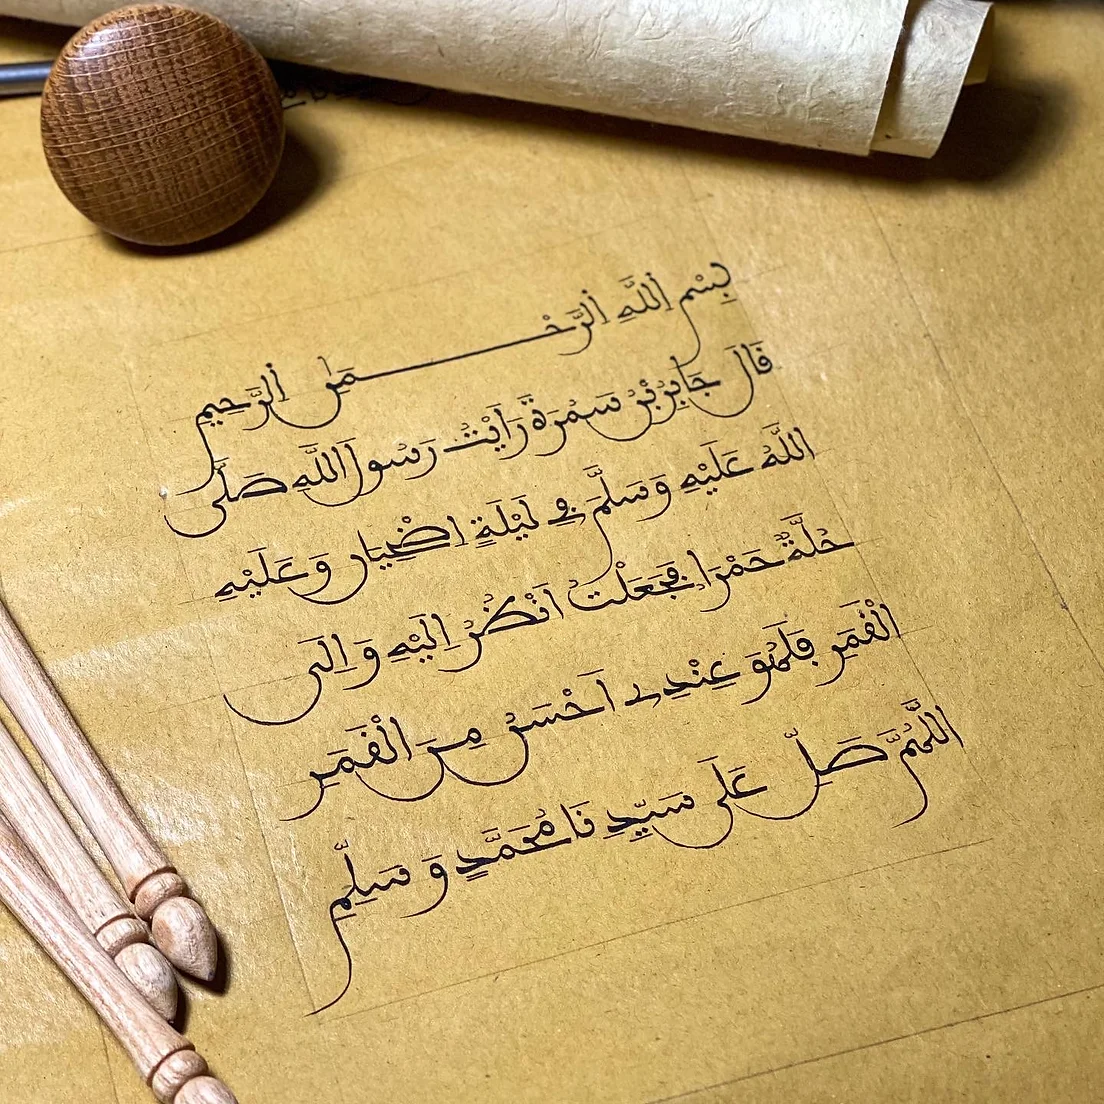 بِسْمِ اللَّهِ الرَّحْمَنِ الرَّحِيمِ
قَالَ جَابِرُ بْنُ سَمُرَةَ رَاَيْتُ رَسُولَ اللَّهِ صَلَّى
اللَّهُ عَلَيْهِ وَسَلَّمَ فِي لَيْلَةٍ اِضْحِيَانٍ وَعَلَيْهِ
حُلَّةٌ حَمْرَا فَجَعَلْتُ اَنْظُرُ اِلَيْهِ وَاِلَى
الْقَمَرِ فَلَهُوَ عِنْدِي اَحْسَنُ مِنَ الْقَمَرِ
اللَّهُمَّ صَلِّ عَلَى سَيِّدِنَا مُحَمَّدٍ وَسَلِّمِ